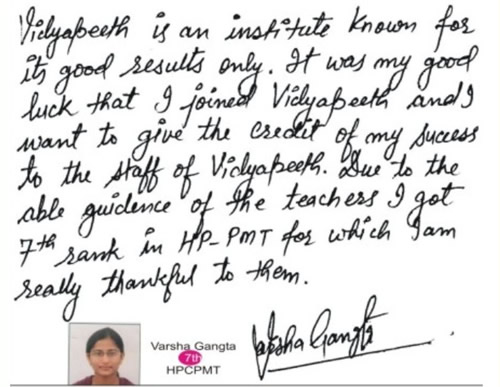 Vidyapeeth is an institute known for
its good results only. It was my good
luck that I joined Vidyapeeth and I
want to give the credit of my success
to the staff of Vidyapeeth. Due to the
able guidence of the teachers I got
7th rank in HP-PMT for which I am
really thankful to them.
Varsha Gangta
7th
HPCPMT
Varsha Gangta